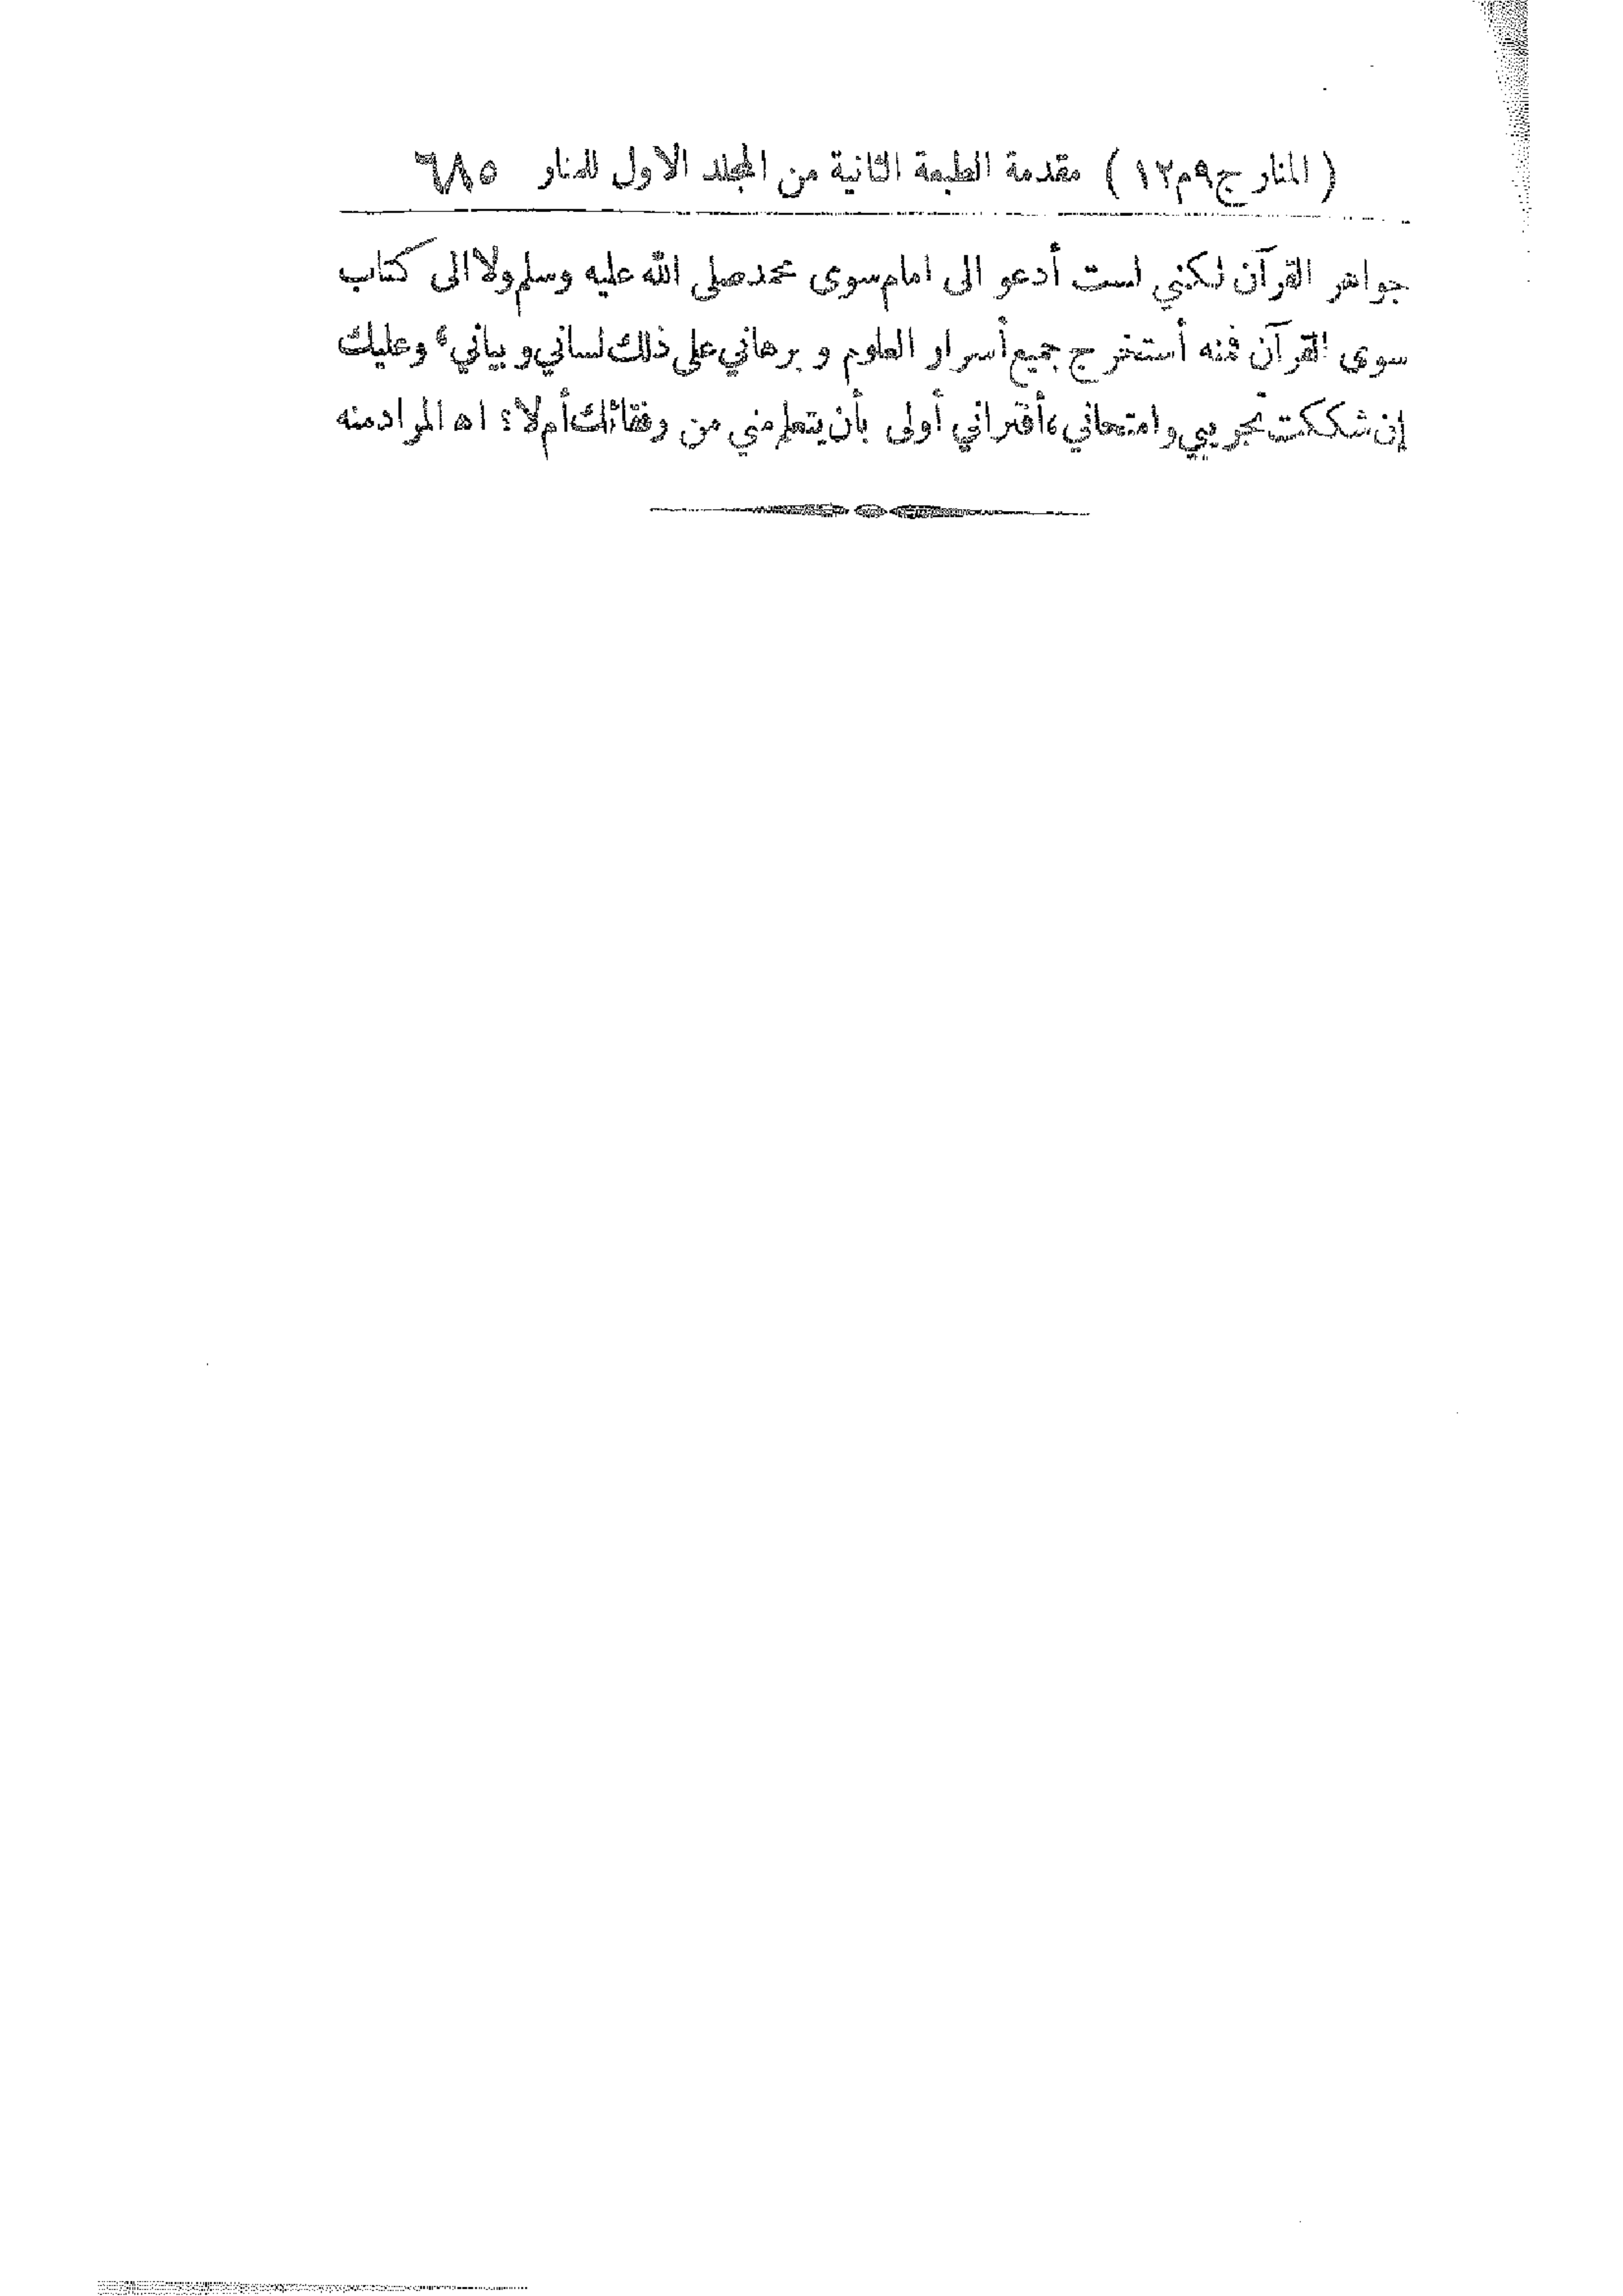 ( المنار ج٩م١٢ ) مقدمة الطبعة الثانية من المجلد الاول للمنار ٦٨٥
جواهر القرآن لكني لست أدعو الى امام سوى محمد صلى الله عليه وسلم ولا الى كتاب
سوى القرآن فمنه أستخرج جميع أسرار العلوم و برهاني على ذلك لساني و بياني، وعليك
إن شككت تجريبي وامتحاني، أفتراني أولى بأن يتعلم مني من رفقائك أم لا؟ اه المراد منه